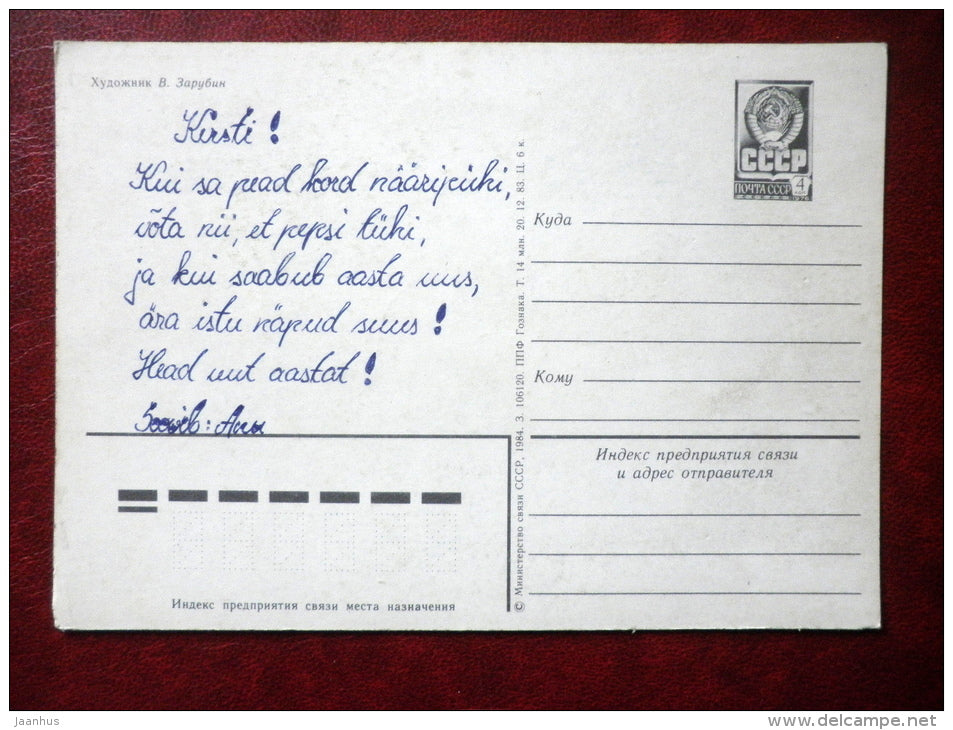 Художник В. Зарубин
Kersti!
Kui sa pead kord nääripeühi,
võta nii, et pepsi tühi,
ja kui saabub aasta uus,
ära istu näpud suus!
Head uut aastat!
Soovib: Anu
СССР
ПОЧТА СССР 4
Куда
Кому
Индекс предприятия связи
и адрес отправителя
Индекс предприятия связи места назначения
© Министерство связи СССР, 1984. З. 106120. ППФ Гознака. Т. 14 млн. 20. 12. 83. Ц. 6 к.
jaanhus
www.delcampe.net